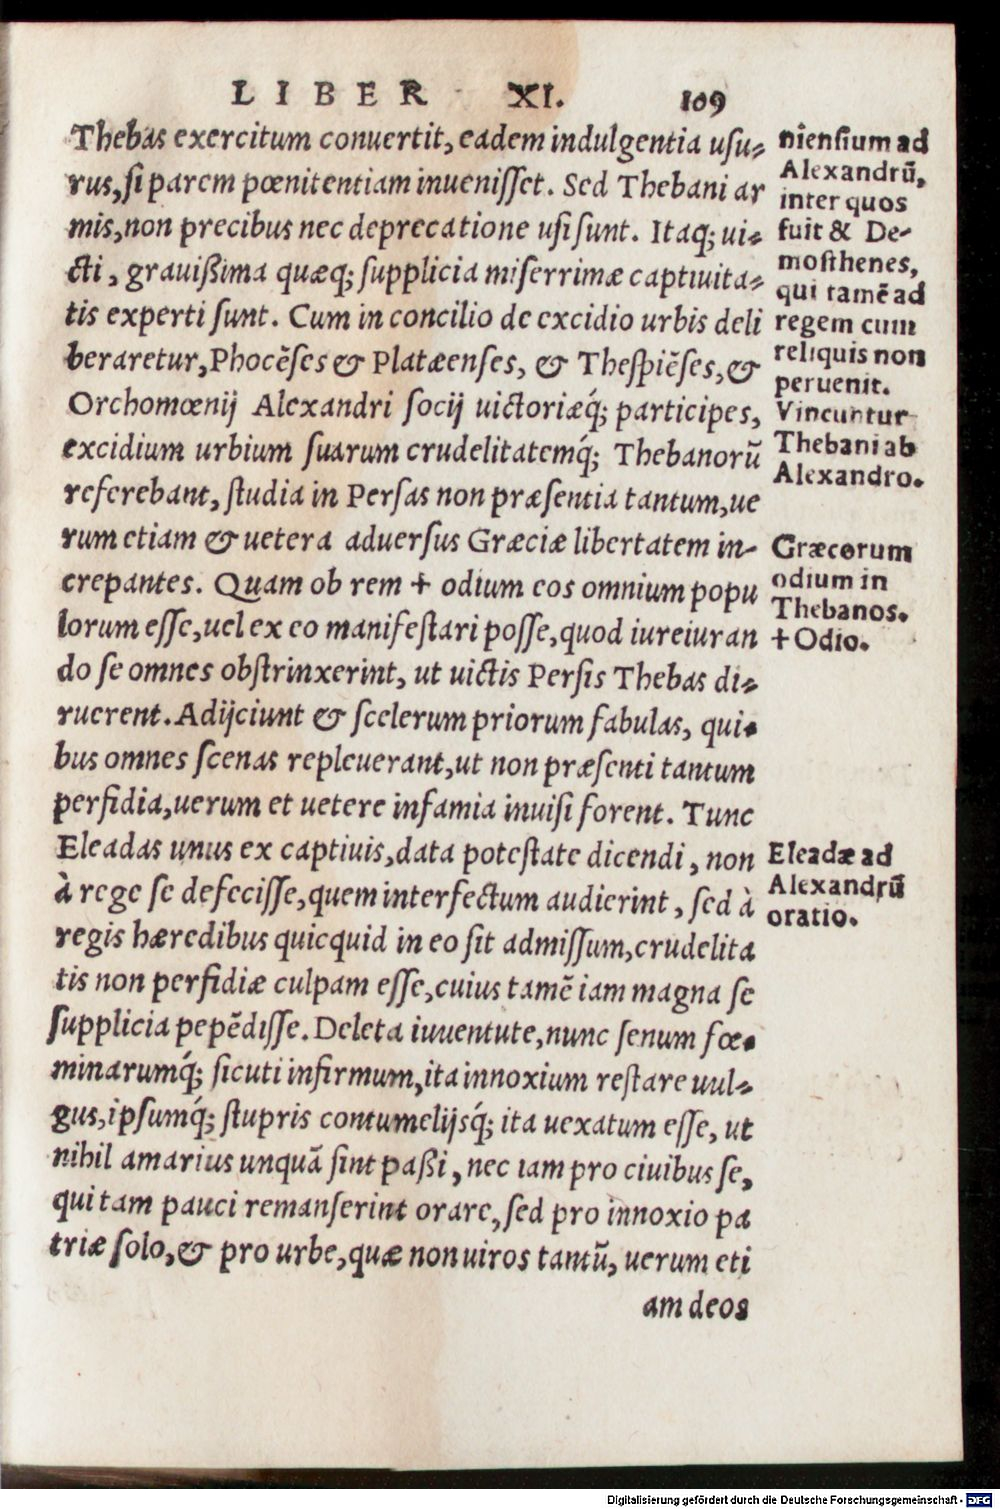 LIBER XI. 109
Thebas exercitum conuertit, eadem indulgentia usu-
rus, si parem pœnitentiam inuenisset. Sed Thebani ar
mis, non precibus nec deprecatione usi sunt. Itaq; ui-
cti, grauißima quæq; supplicia miserrimæ captiuita-
tis experti sunt. Cum in concilio de excidio urbis deli
beraretur, Phocẽses & Platæenses, & Thespiẽses, &
Orchomœnij Alexandri socij uictoriæq́; participes,
excidium urbium suarum crudelitatemq́; Thebanorũ
referebant, studia in Persas non præsentia tantum, ue
rum etiam & uetera aduersus Græciæ libertatem in-
crepantes. Quam ob rem + odium eos omnium popu
lorum esse, uel ex eo manifestari posse, quod iureiuran
do se omnes obstrinxerint, ut uictis Persis Thebas di-
ruerent. Adijciunt & scelerum priorum fabulas, qui-
bus omnes scenas repleuerant, ut non præsenti tantum
perfidia, uerum et uetere infamia inuisi forent. Tunc
Eleadas unus ex captiuis, data potestate dicendi, non
à rege se defecisse, quem interfectum audierint, sed à
regis hæredibus quicquid in eo sit admissum, crudelita
tis non perfidiæ culpam esse, cuius tamẽ iam magna se
supplicia pepẽdisse. Deleta iuuentute, nunc senum fœ-
minarumq́; sicuti infirmum, ita innoxium restare uul-
gus, ipsumq́; stupris contumelijsq́; ita uexatum esse, ut
nihil amarius unquã sint paßi, nec iam pro ciuibus se,
qui tam pauci remanserint orare, sed pro innoxio pa
triæ solo, & pro urbe, quæ non uiros tantũ, uerum eti
am deos
niensium ad
Alexandrũ,
inter quos
fuit & De-
mosthenes,
qui tamẽ ad
regem cum
reliquis non
peruenit.
Vincuntur
Thebani ab
Alexandro.
Græcorum
odium in
Thebanos.
+ Odio.
Eleadæ ad
Alexandrũ
oratio.
Digitalisierung gefördert durch die Deutsche Forschungsgemeinschaft - DFG